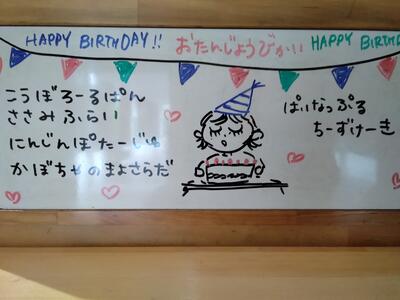 HAPPY BIRTHDAY!! おたんじょうびかい HAPPY BIRTHD
こうぼろーるぱん
ささみふらい
にんじんぽたーじゅ
かぼちゃのまよさらだ
ぱいなっぷる
ちーずけーき